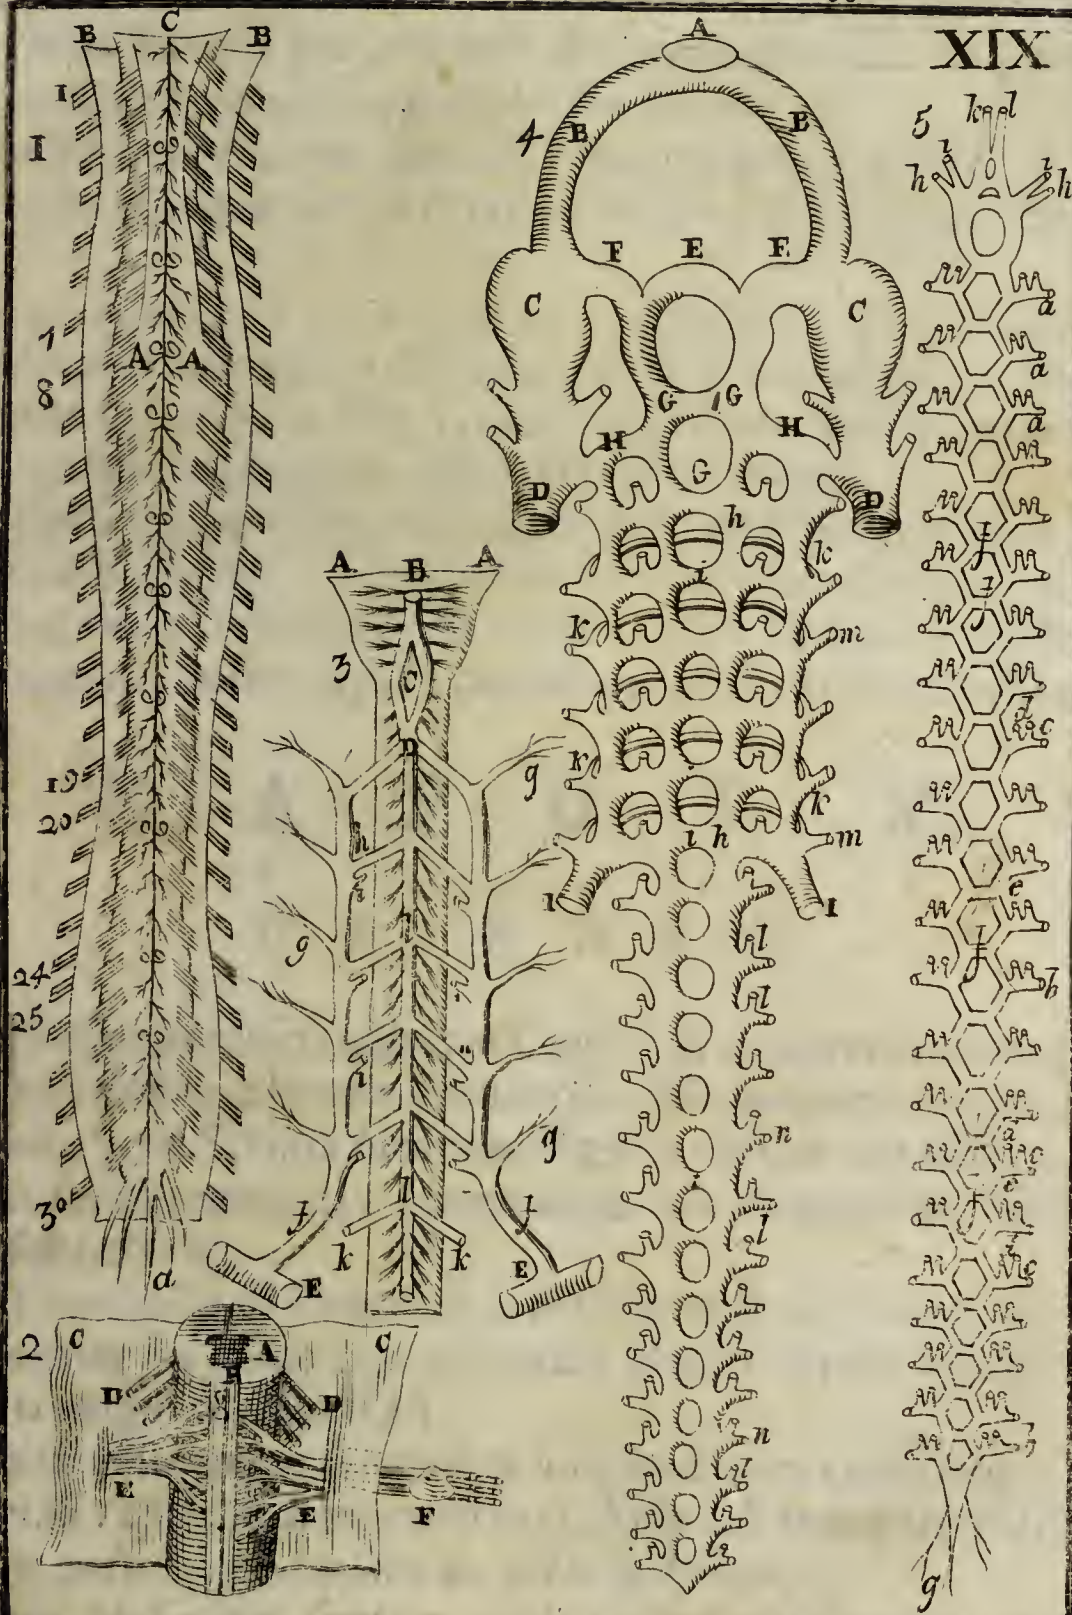 XIX
B C B
1
I
7
A A
8
19
20
24
25
30
a
2
C C
A
B
D D
E E
F
3
A B A
C
D
g
h
g
h
g
f f
l
k k
E E
4
A
B B
F E F
C C
G G
H H
G
D D
h
k
i
k m
k
k
i h m
I I
l
l
n
l
n
l
5 k l
i i
h h
a
a
a
I
f
I
d
c
e
I
f
b
a
c
e
f
g